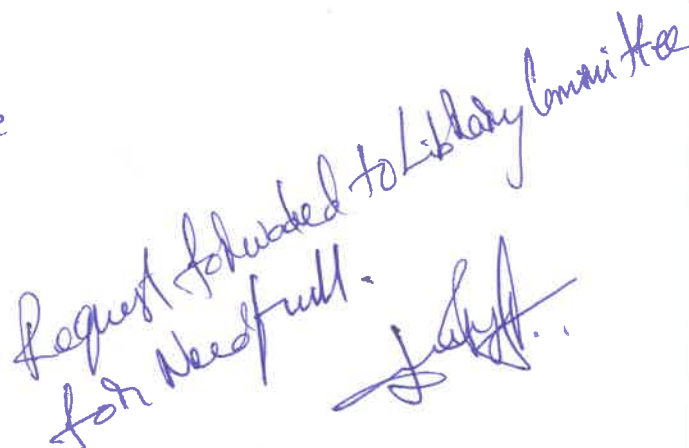 Request forwarded to Library Committee
for Needfull.